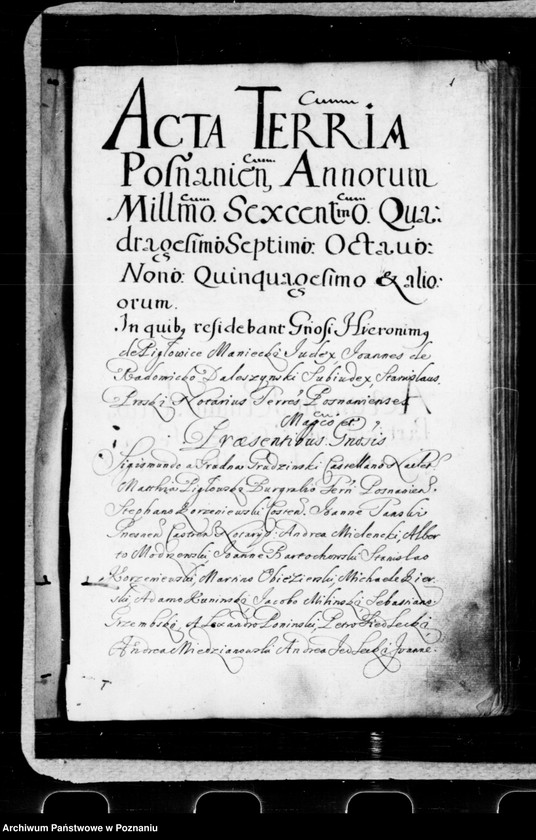 1
ACTA TERRIA
cum
Posnanien, Annorum
cum
Millmo. Sexcentmo. Qua:
cum cum
dragesimo Septimo: Octavo:
Nono: Quinquagesimo & alio:
orum.
In quib, residebant Gnosi. Hieronim,
de Pigłowice Maniecki Judex Joannes de
Radomicko Daleszynski Subiudex, Stanislaus
Notarius Terres Posnanienses
Magco et
Præsentibus. Gnosis
Sigismundo a Grudna Grudzinski Castellano
Matthia Pigłowski Burgrabio Posnanien.
Stephano Korzeniewski Joanne
Gnesnen Castren Notary: Andrea Mielencki, Alber
to Modrzenski Joanne Bartochowski Stanislao
Korzeniewski, Martino Obiezierski, Michaele
ski, Adamo Kuninski Jacobo Milinski Sebastiano
Grzembski, Alexandro Poninski, Petro Siedlecki,
Andrea Miedzianowski Andrea Jedlecki Joanne.
Archiwum Państwowe w Poznaniu